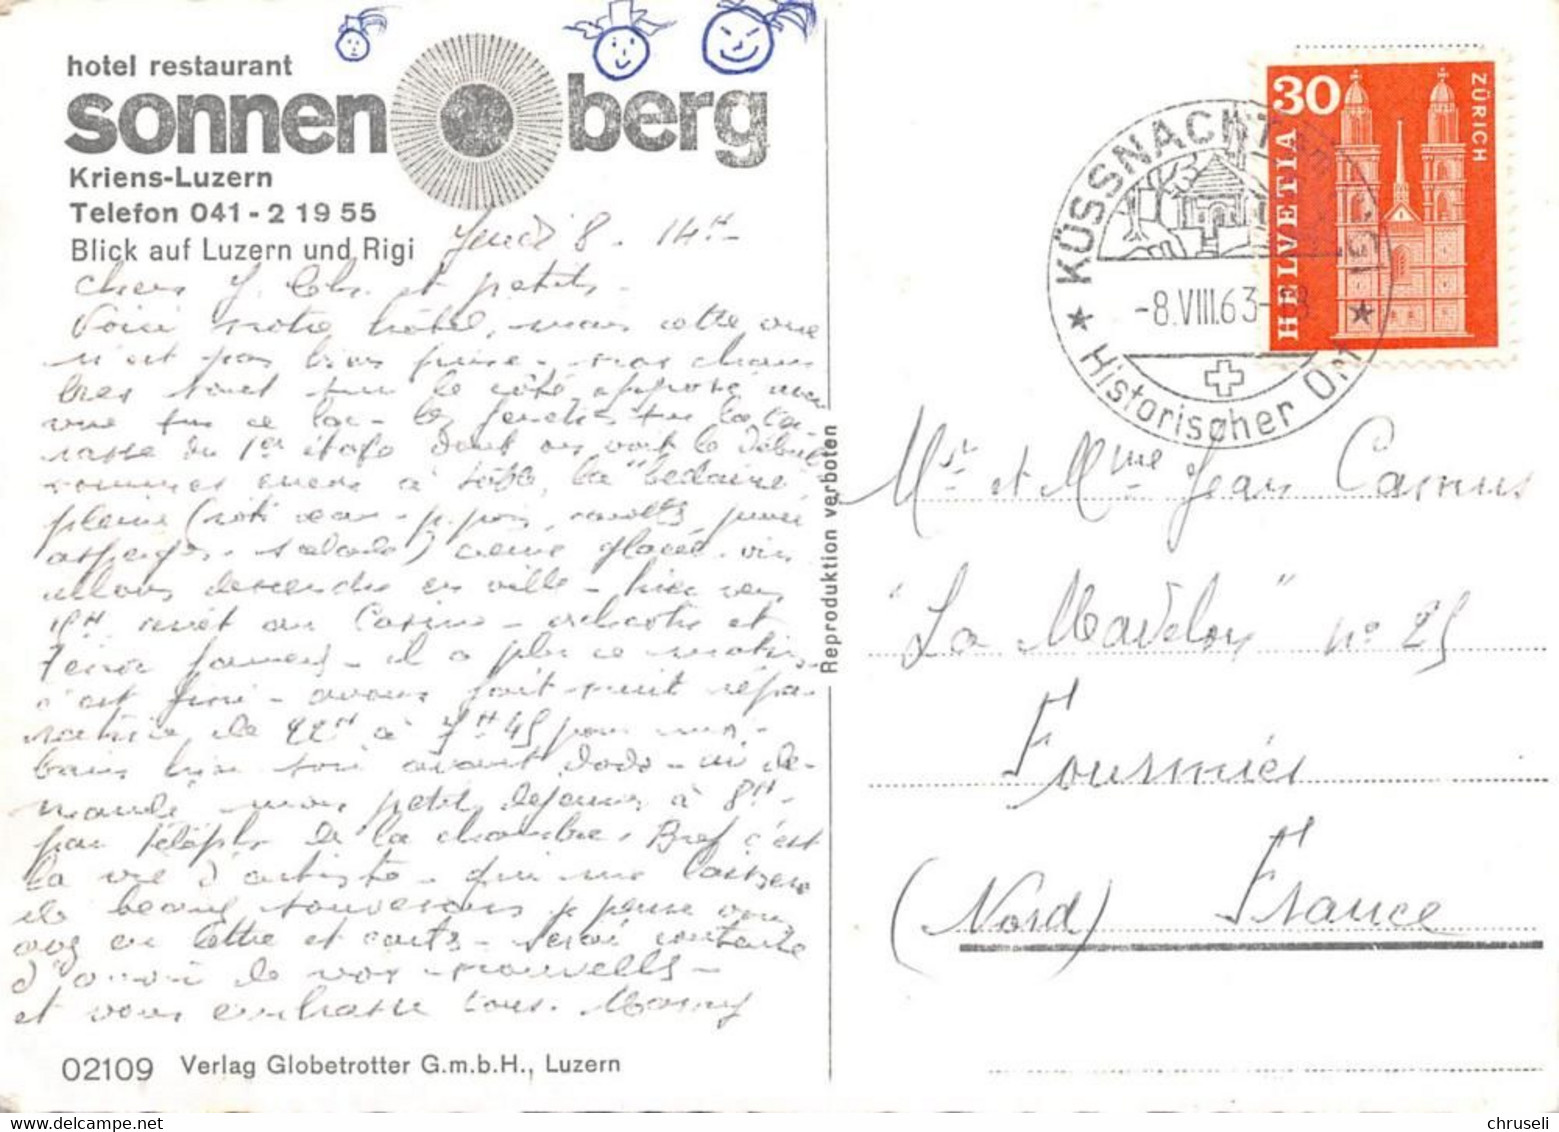 hotel restaurant
sonnenberg
Kriens-Luzern
Telefon 041 - 2 19 55
Blick auf Luzern und Rigi
Jeudi 8. 14H -
chers J. et petits -
Voici notre hôtel, mais cette vue
n'est pas bien prise - nos cham
bres sont sur le côté opposé avec
vue sur ce lac - les sur la ter
rasse du 1er étage dont on voit le début
sommes encore à table, la bedaine
pleine (rôti veau - p. pois, carottes,
asperges - salade) crème glacée - vin
allons descendre en ville - hier vers
au Casino - orchestre et
- il a plu ce matin -
c'est fini - avons fait nuit répa-
ratrice de 22H à 7H45 pour moi -
bains hier soir avant dodo - ai de-
mandé mon petit déjeuner à 8H -
par téléph. de la chambre. Bref c'est
la vie d'artiste - qui me laissera
de beaux souvenirs je pense vous
avez eu lettre et carte - serai contente
d'avoir de vos nouvelles -
et vous embrasse tous. Mamy
02109 Verlag Globetrotter G.m.b.H., Luzern
Reproduktion verboten
KÜSSNACHT AM RIGI
-8.VIII.63-
Historischer Ort
HELVETIA
30
ZÜRICH
Mr et Mme Jean Camus
"La Madelon" no 25
Fourmies
(Nord) France